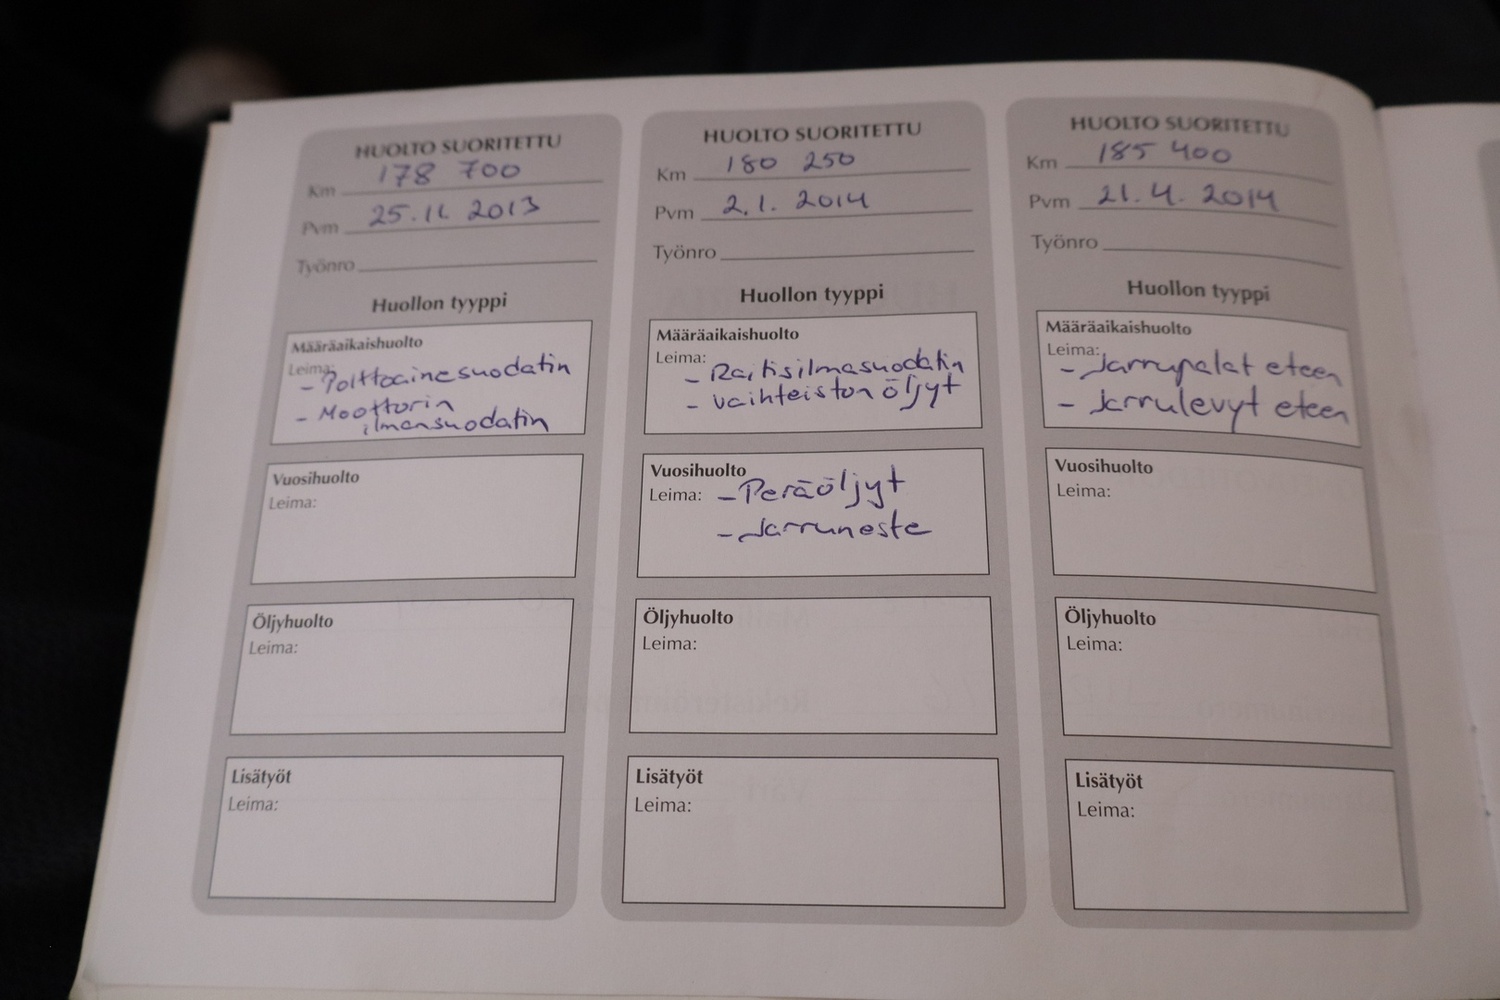 HUOLTO SUORITETTU
Km 178 700
Pvm 25.11 2013
Työnro
Huollon tyyppi
Määräaikaishuolto
Leima:
- Polttoainesuodatin
- Moottorin
ilmansuodatin
Vuosihuolto
Leima:
Öljyhuolto
Leima:
Lisätyöt
Leima:
HUOLTO SUORITETTU
Km 180 250
Pvm 2.1. 2014
Työnro
Huollon tyyppi
Määräaikaishuolto
Leima:
- Raitisilmasuodatin
- vaihteiston öljyt
Vuosihuolto
Leima: - Peräöljyt
- Jarruneste
Öljyhuolto
Leima:
Lisätyöt
Leima:
HUOLTO SUORITETTU
Km 185 400
Pvm 21.4. 2014
Työnro
Huollon tyyppi
Määräaikaishuolto
Leima:
- Jarrupalat eteen
- Jarrulevyt eteen
Vuosihuolto
Leima:
Öljyhuolto
Leima:
Lisätyöt
Leima: